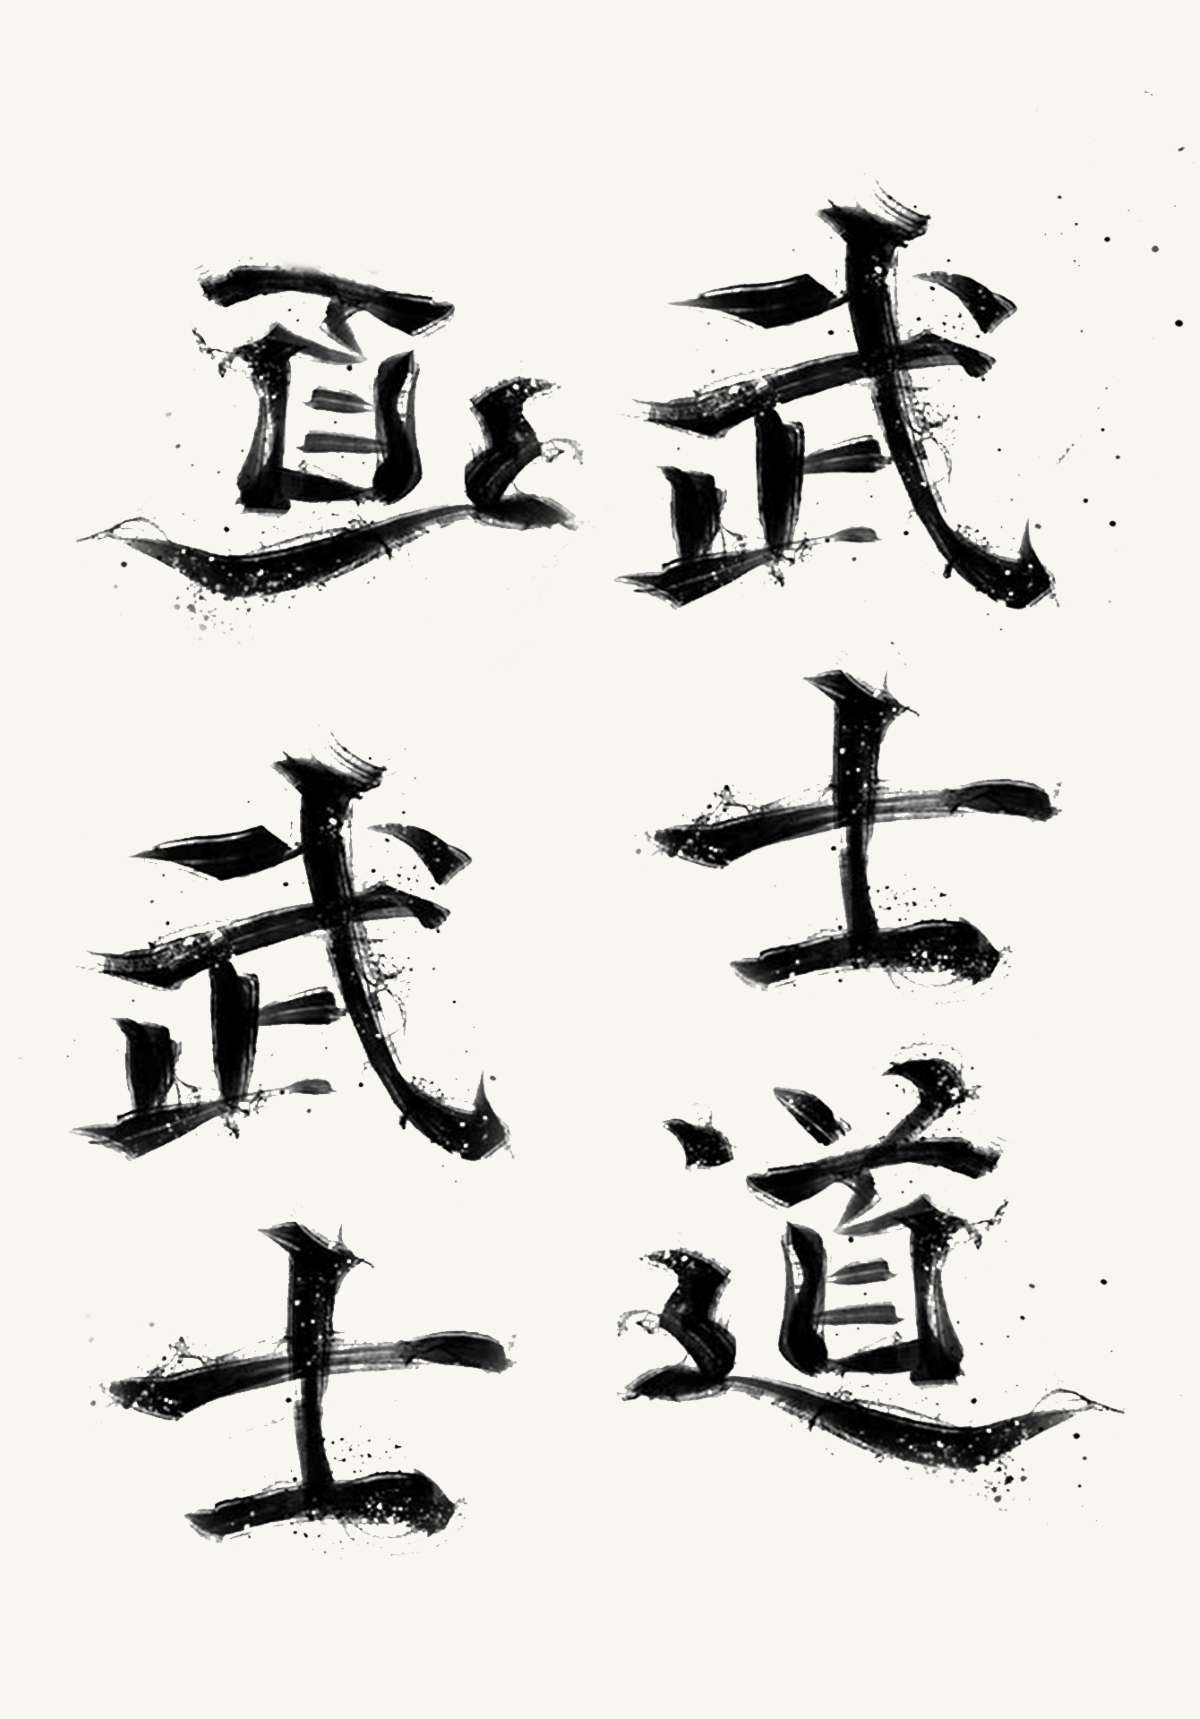 武士道
武士